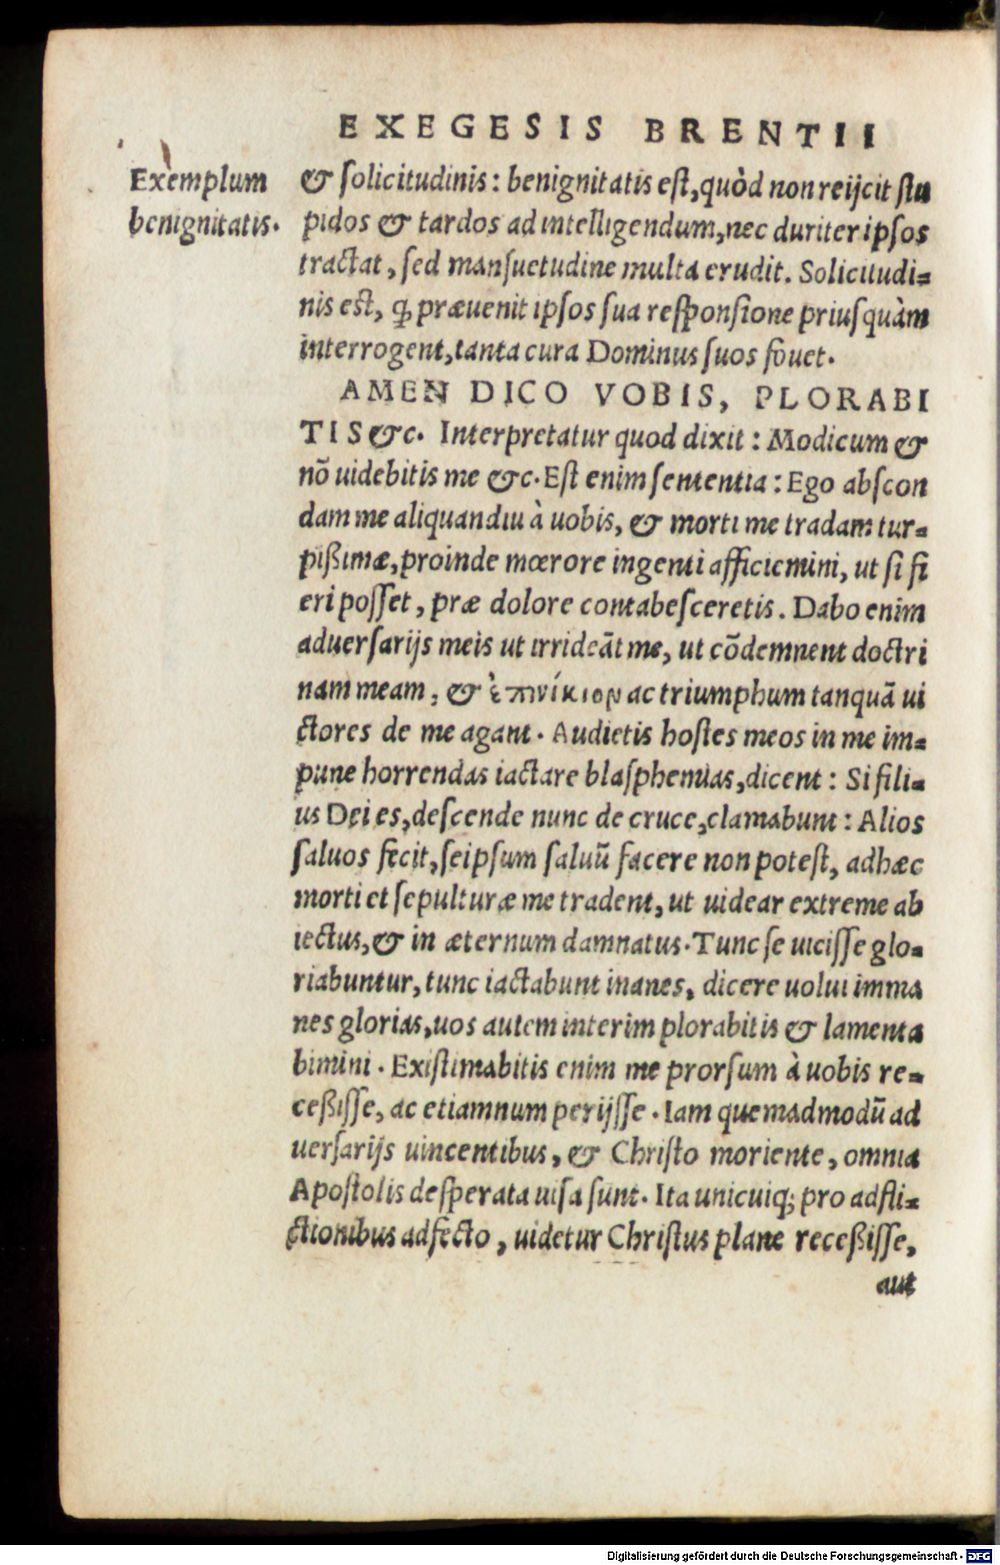 EXEGESIS BRENTII
Exemplum
benignitatis.
& solicitudinis: benignitatis est, quòd non reijcit stu
pidos & tardos ad intelligendum, nec duriter ipsos
tractat, sed mansuetudine multa erudit. Solicitudi-
nis est, ꝙ præuenit ipsos sua responsione priusquàm
interrogent, tanta cura Dominus suos fouet.
AMEN DICO VOBIS, PLORABI
TIS &c. Interpretatur quod dixit: Modicum &
nõ uidebitis me &c. Est enim sententia: Ego abscon
dam me aliquandiu à uobis, & morti me tradam tur-
pißimæ, proinde mœrore ingenti afficiemini, ut si fi
eri posset, præ dolore contabesceretis. Dabo enim
aduersarijs meis ut irrideāt me, ut cõdemnent doctri
nam meam, & ἐπινίκιον ac triumphum tanquā ui
ctores de me agant. Audietis hostes meos in me im-
pune horrendas iactare blasphemias, dicent: Si fili-
us Dei es, descende nunc de cruce, clamabunt: Alios
saluos fecit, seipsum saluū facere non potest, adhæc
morti et sepulturæ me tradent, ut uidear extreme ab
iectus, & in æternum damnatus. Tunc se uicisse glo-
riabuntur, tunc iactabunt inanes, dicere uolui imma
nes glorias, uos autem interim plorabitis & lamenta
bimini. Existimabitis enim me prorsum à uobis re-
ceßisse, ac etiamnum perijsse. Iam quemadmodū ad
uersarijs uincentibus, & Christo moriente, omnia
Apostolis desperata uisa sunt. Ita unicuiq; pro adfli-
ctionibus adfecto, uidetur Christus plane receßisse,
aut
Digitalisierung gefördert durch die Deutsche Forschungsgemeinschaft - DFG